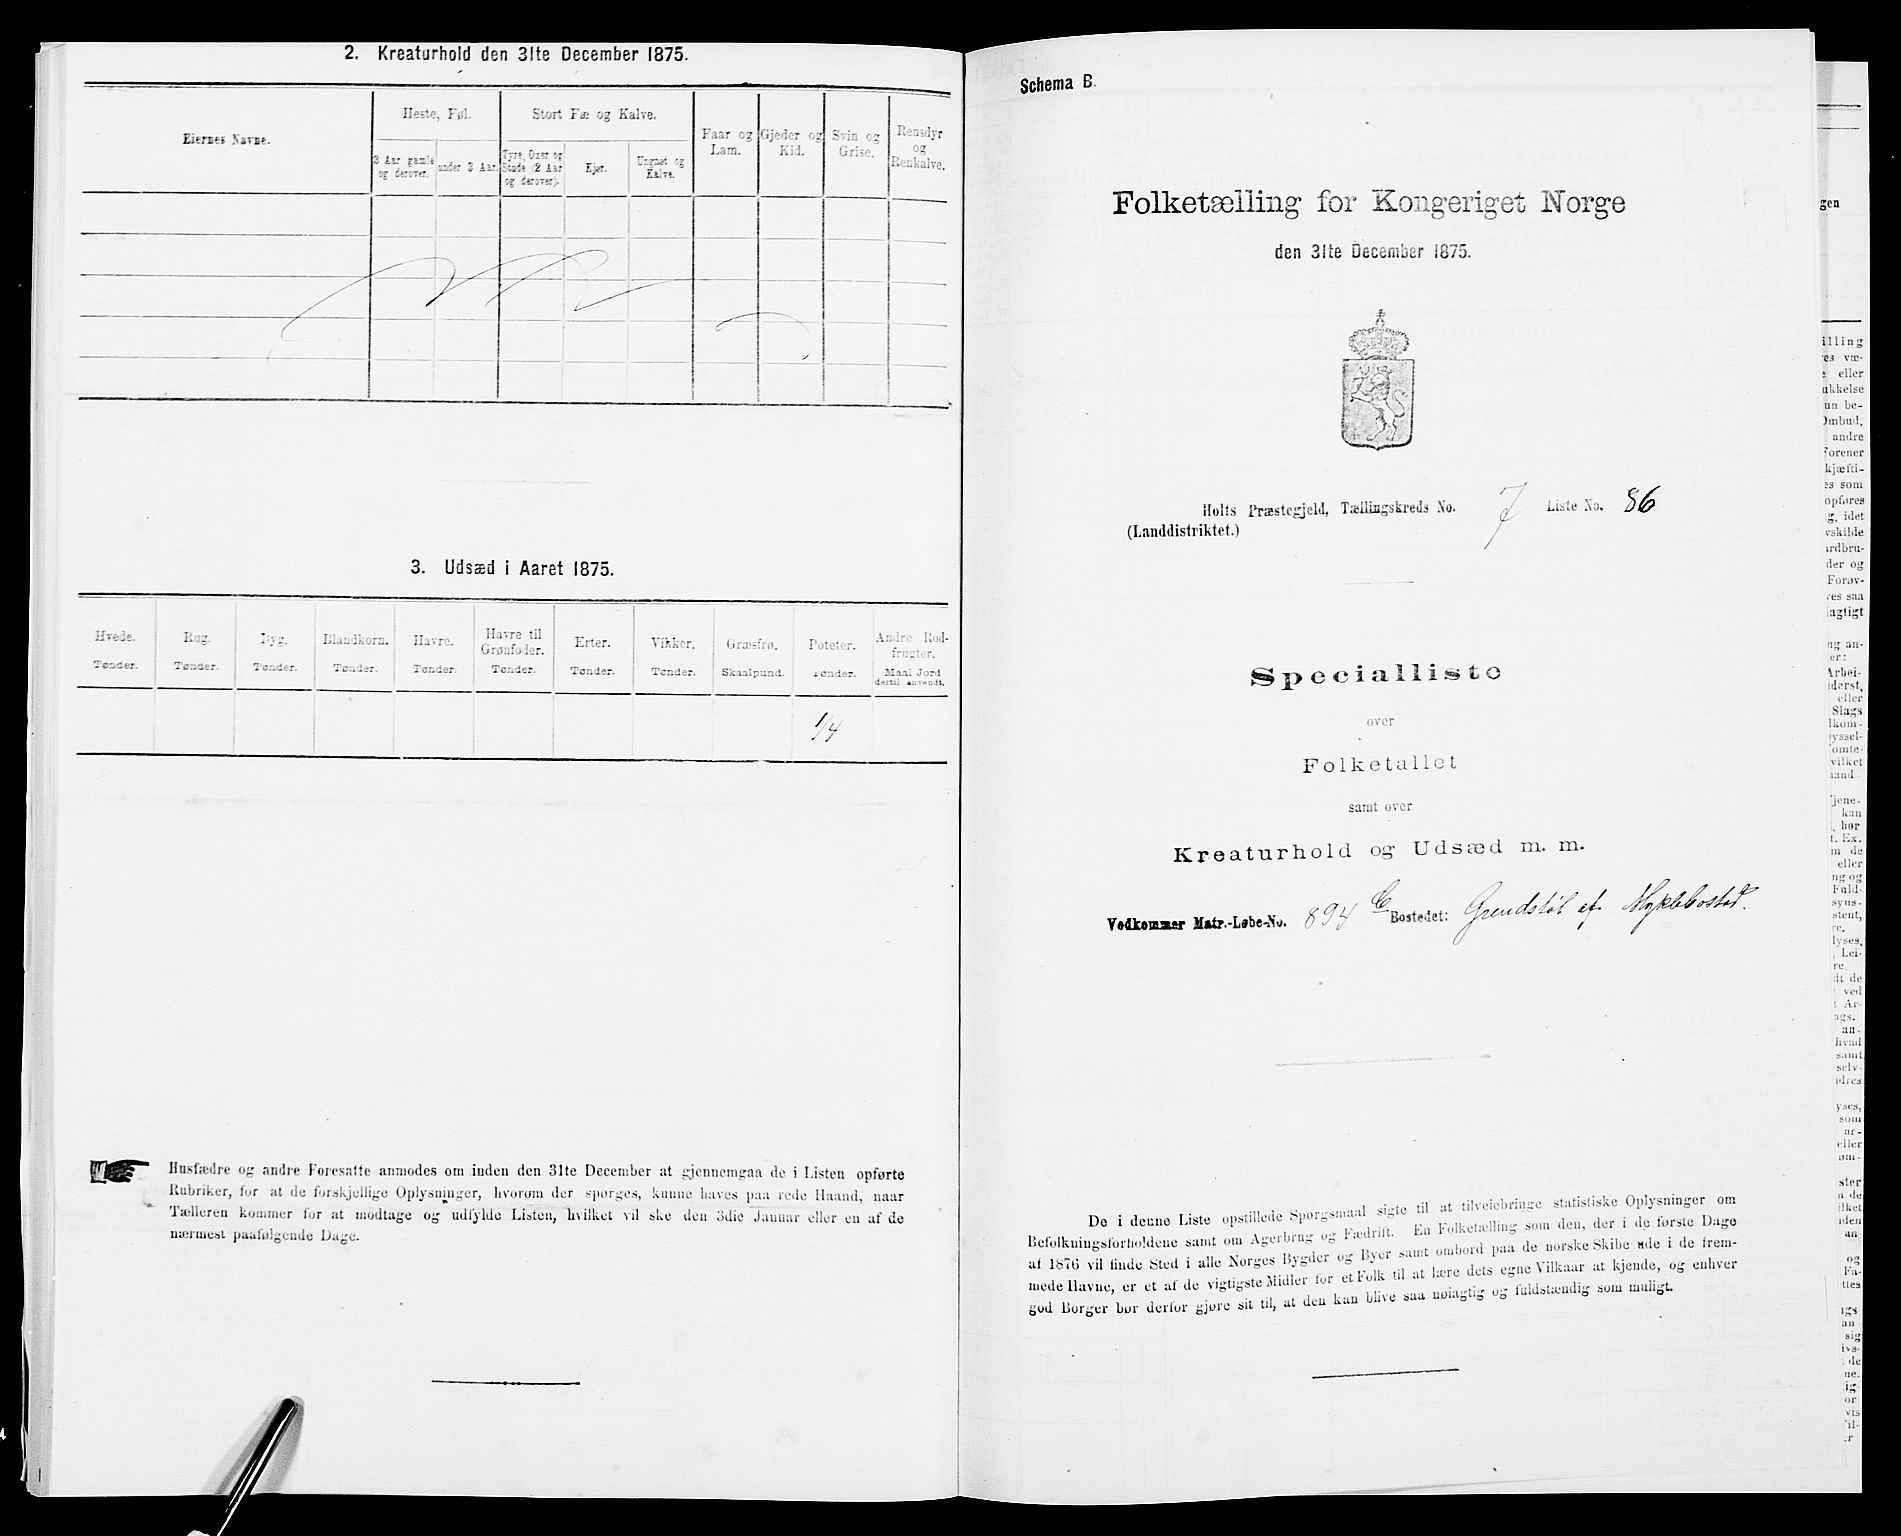 2. Kreaturhold den 31te December 1875.
Eiernes Navne.
Heste, Føl.
3 Aar gamle og derover.
under 3 Aar.
Stort Fæ og Kalve.
Tyre, Oxer og Stude (2 Aar og derover).
Kjør.
Ungnøt og Kalve.
Faar og Lam.
Gjeder og Kid.
Svin og Grise.
Rensdyr og Renkalve.
3. Udsæd i Aaret 1875.
Hvede. Rug. Byg. Blandkorn. Havre. Havre til Grønfoder. Erter. Vikker. Græsfrø. Poteter. Andre Rodfrugter.
Tønder. Tønder. Tønder. Tønder. Tønder. Tønder. Tønder. Tønder. Skaalpund. Tønder. Maal Jord dertil anvendt.
1/4
Husfædre og andre Foresatte anmodes om inden den 31te December at gjennemgaa de i Listen opførte
Rubriker, for at de forskjellige Oplysninger, hvorom der spørges, kunne haves paa rede Haand, naar
Tælleren kommer for at modtage og udfylde Listen, hvilket vil ske den 3die Januar eller en af de
nærmest paafølgende Dage.
Schema B.
Folketælling for Kongeriget Norge
den 31te December 1875.
Holts Præstegjeld, Tællingskreds No. 7 Liste No. 86
(Landdistriktet.)
Specialliste
over
Folketallet
samt over
Kreaturhold og Udsæd m. m.
Vedkommer Matr.-Løbe-No. 894 C Bostedet: Grendstøl af Myklebostad.
De i denne Liste opstillede Spørgsmaal sigte til at tilveiebringe statistiske Oplysninger om
Befolkningsforholdene samt om Agerbrug og Fædrift. En Folketælling som den, der i de første Dage
af 1876 vil finde Sted i alle Norges Bygder og Byer samt ombord paa de norske Skibe ude i de frem-
mede Havne, er et af de vigtigste Midler for et Folk til at lære dets egne Vilkaar at kjende, og enhver
god Borger bør derfor gjøre sit til, at den kan blive saa nøiagtig og fuldstændig som muligt.